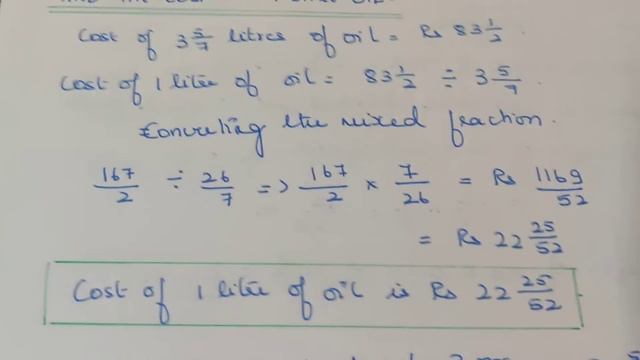 Cost of 3 5/7 litres of oil = Rs 83 1/2
Cost of 1 litre of oil = 83 1/2 ÷ 3 5/7.
Converting the mixed fraction.
167/2 ÷ 26/7 => 167/2 × 7/26 = Rs 1169/52
= Rs 22 25/52
Cost of 1 litre of oil is Rs 22 25/52